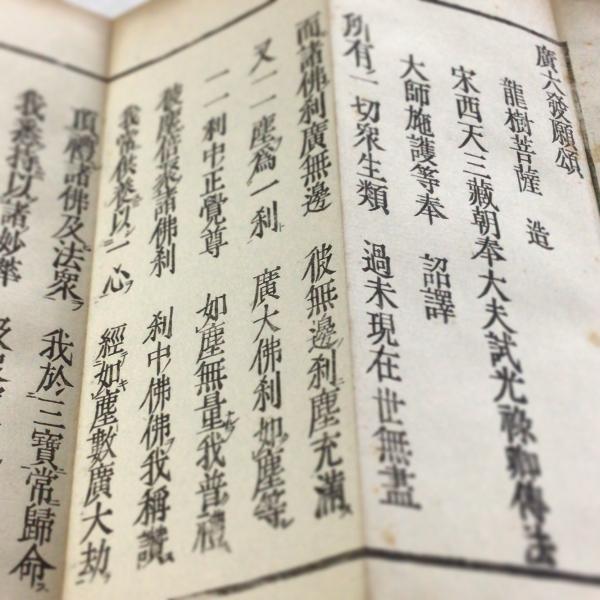 廣大發願頌
龍樹菩薩 造
宋西天三藏朝奉大夫試光祿卿傳法
大師施護等奉 詔譯
所有一切衆生類 過未現在世無盡
而諸佛刹廣無邊 彼無邊刹塵充滿
又一一塵為一刹 廣大佛刹如塵等
一一刹中正覺尊 如塵無量我普禮
彼塵倍聚諸佛刹 刹中佛佛我稱讚
我常供養以一心 經如塵數廣大劫
頂禮諸佛及法衆 我於三寶常歸命
我奉持以諸妙華